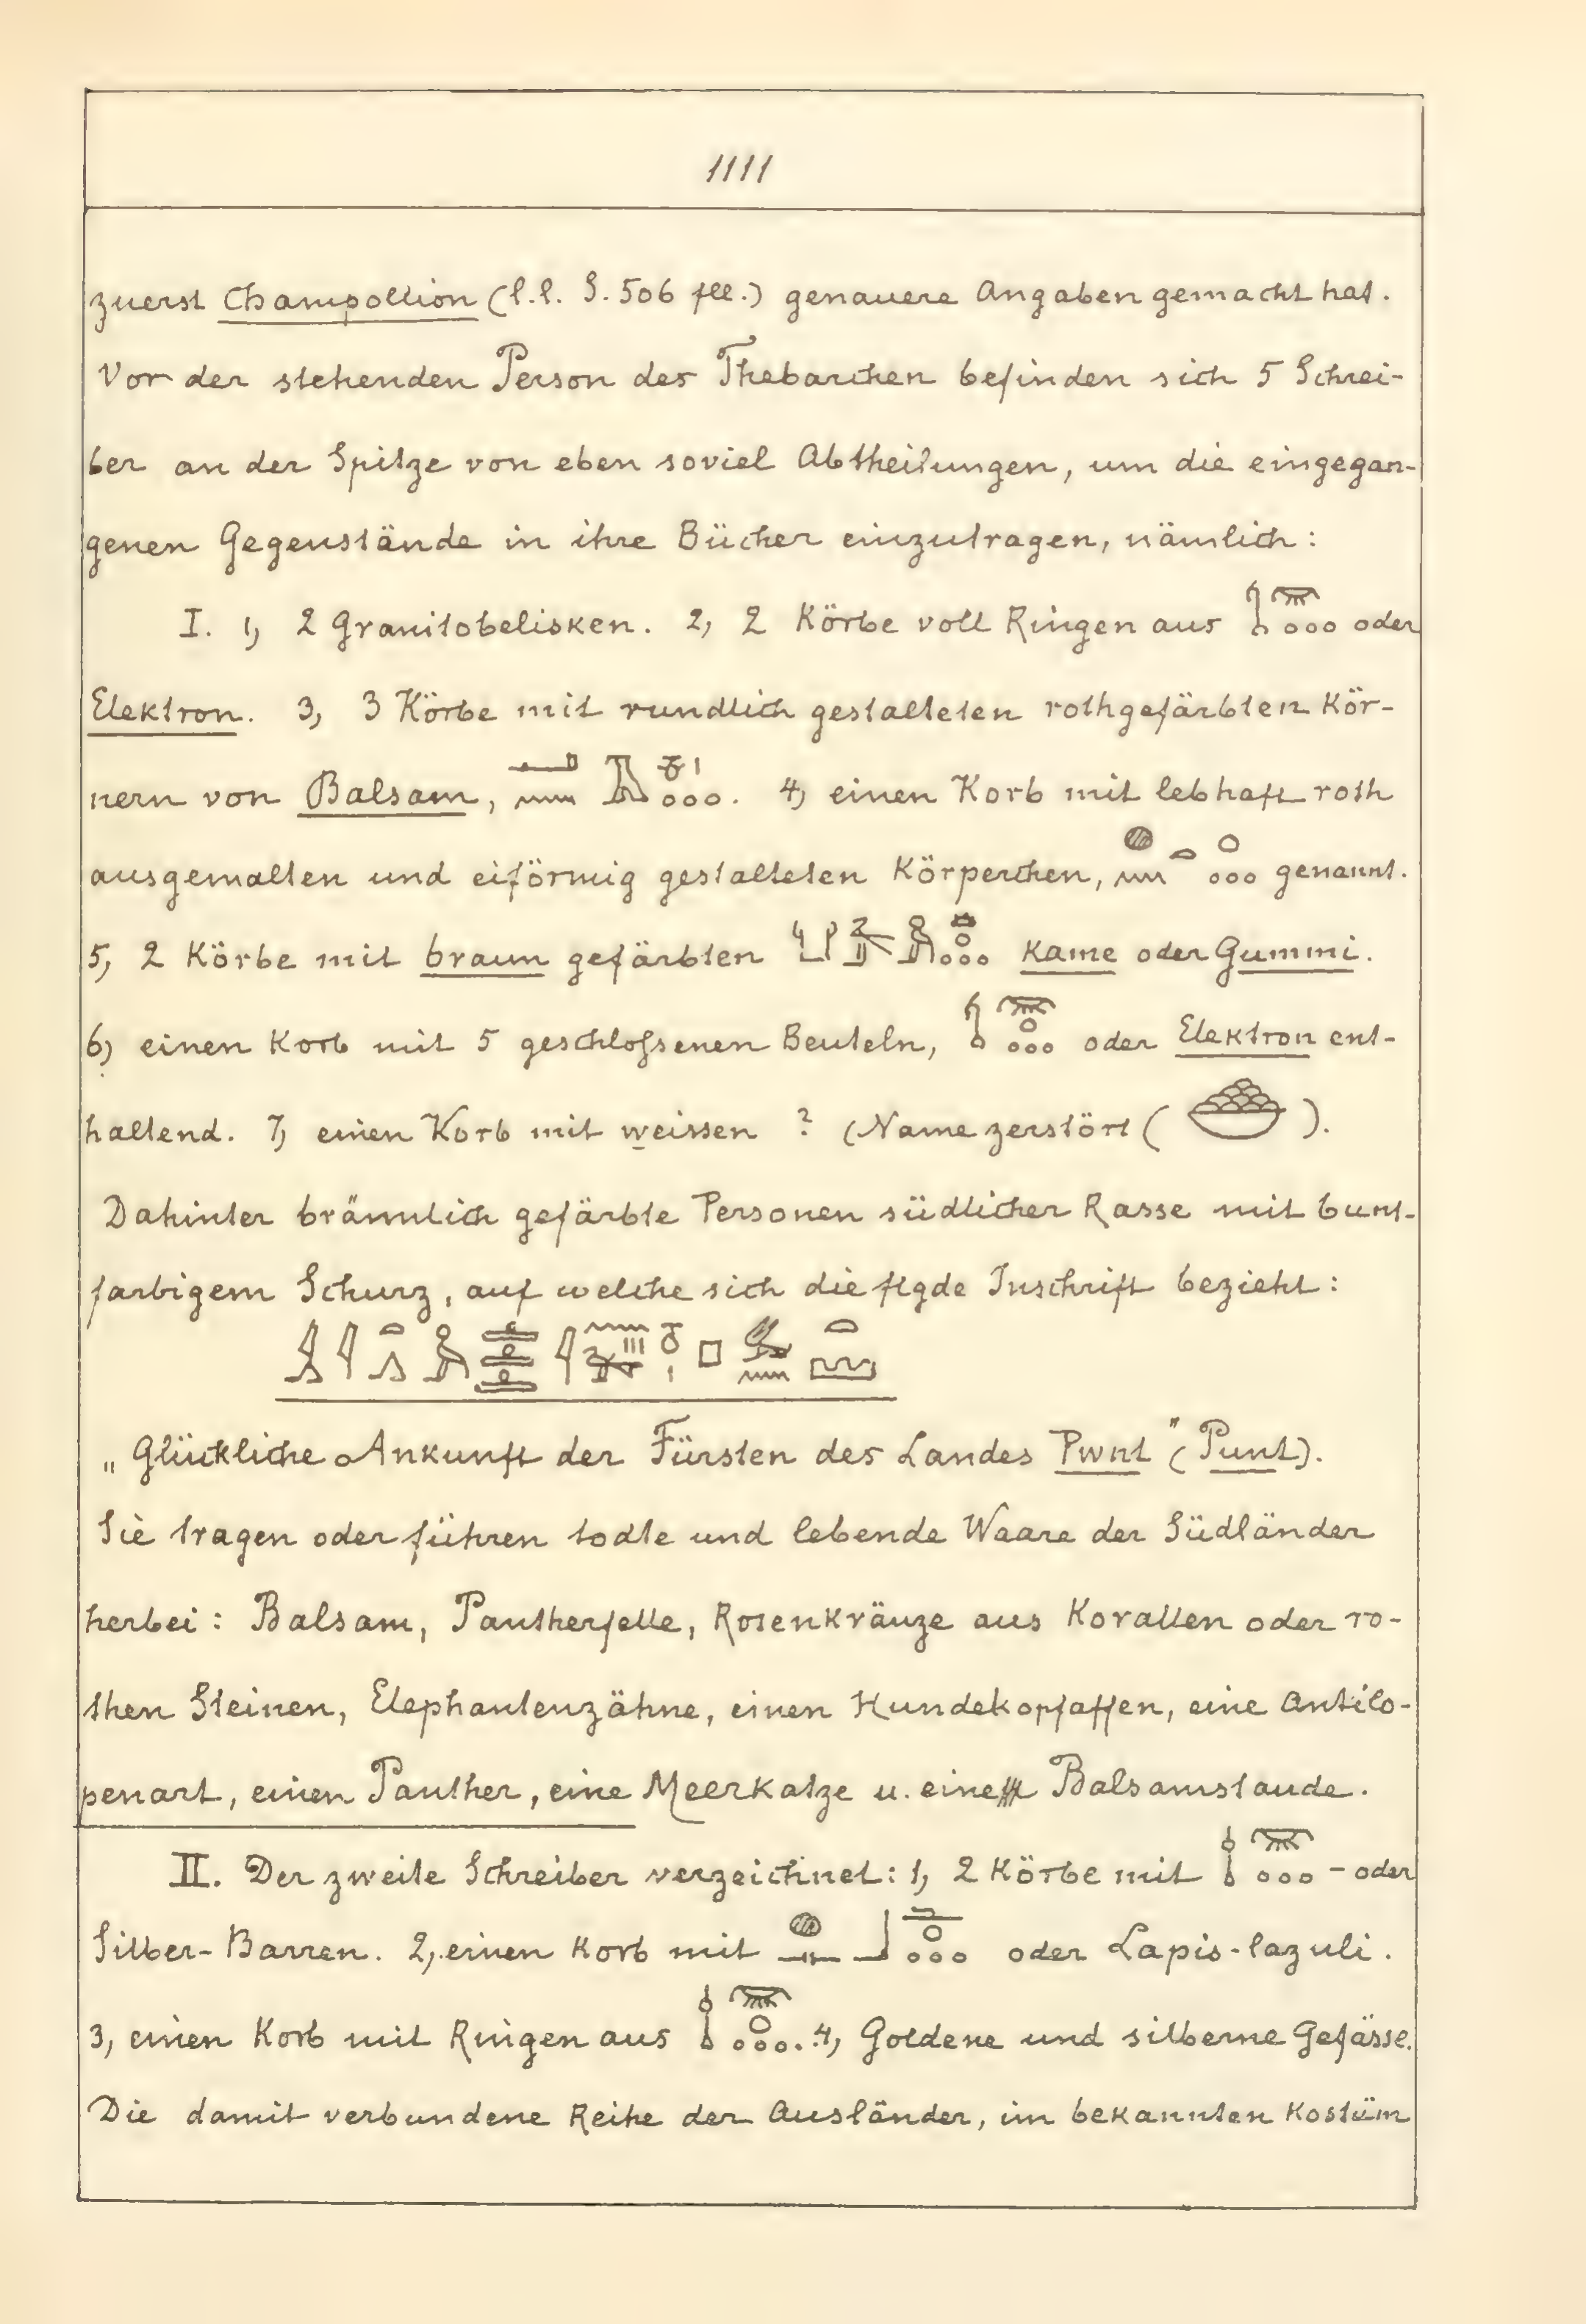 1111
zuerst Champollion (l.l. S. 506 fll.) genauere Angaben gemacht hat.
Vor der stehenden Person des Thebarchen befinden sich 5 Schrei-
ber an der Spitze von eben soviel Abtheilungen, um die eingegan-
genen Gegenstände in ihre Bücher einzutragen, nämlich:
I. 1, 2 Granitobelisken. 2, 2 Körbe voll Ringen aus oder
Elektron. 3, 3 Körbe mit rundlich gestalteten rothgefärbten Kör-
nern von Balsam, . 4, einen Korb mit lebhaft roth
ausgemalten und eiförmig gestalteten Körperchen, genannt.
5, 2 Körbe mit braun gefärbten Kame oder Gummi.
6) einen Korb mit 5 geschloßsenen Beuteln, oder Elektron ent-
haltend. 7, einen Korb mit weissen ? (Name zerstört ( ).
Dahinter bräunlich gefärbte Personen südlicher Rasse mit bunt-
farbigem Schurz, auf welche sich die flgde Inschrift bezieht:
„Glückliche Ankunft der Fürsten des Landes Pwnt" (Punt).
Sie tragen oder führen todte und lebende Waare der Südländer
herbei: Balsam, Pantherfelle, Rosenkränze aus Korallen oder ro-
then Steinen, Elephantenzähne, einen Hundekopfaffen, eine Antilo-
penart, einen Panther, eine Meerkatze u. eine Balsamstaude.
II. Der zweite Schreiber verzeichnet: 1, 2 Körbe mit - oder
Silber-Barren. 2, einen Korb mit oder Lapis-lazuli.
3, einen Korb mit Ringen aus . 4, Goldene und silberne Gefässe.
Die damit verbundene Reihe der Ausländer, im bekannten Kostüm